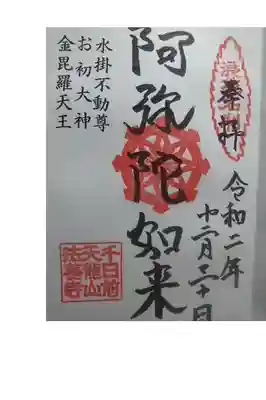 奉拝
令和二年
十二月二十日
阿弥陀如来
水掛不動尊
お初大神
金毘羅天王
千日前
天龍山
法善寺